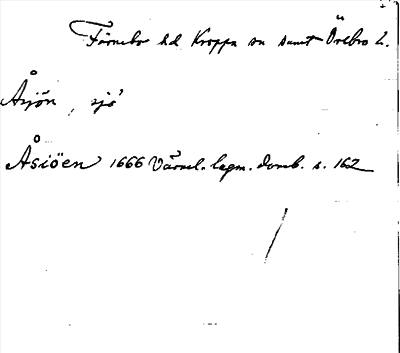 Färnebo hd Kroppa sn samt Örebro L.
Åsjön, sjö
Åsiöen 1666 Värml. lagm. domb. s. 162